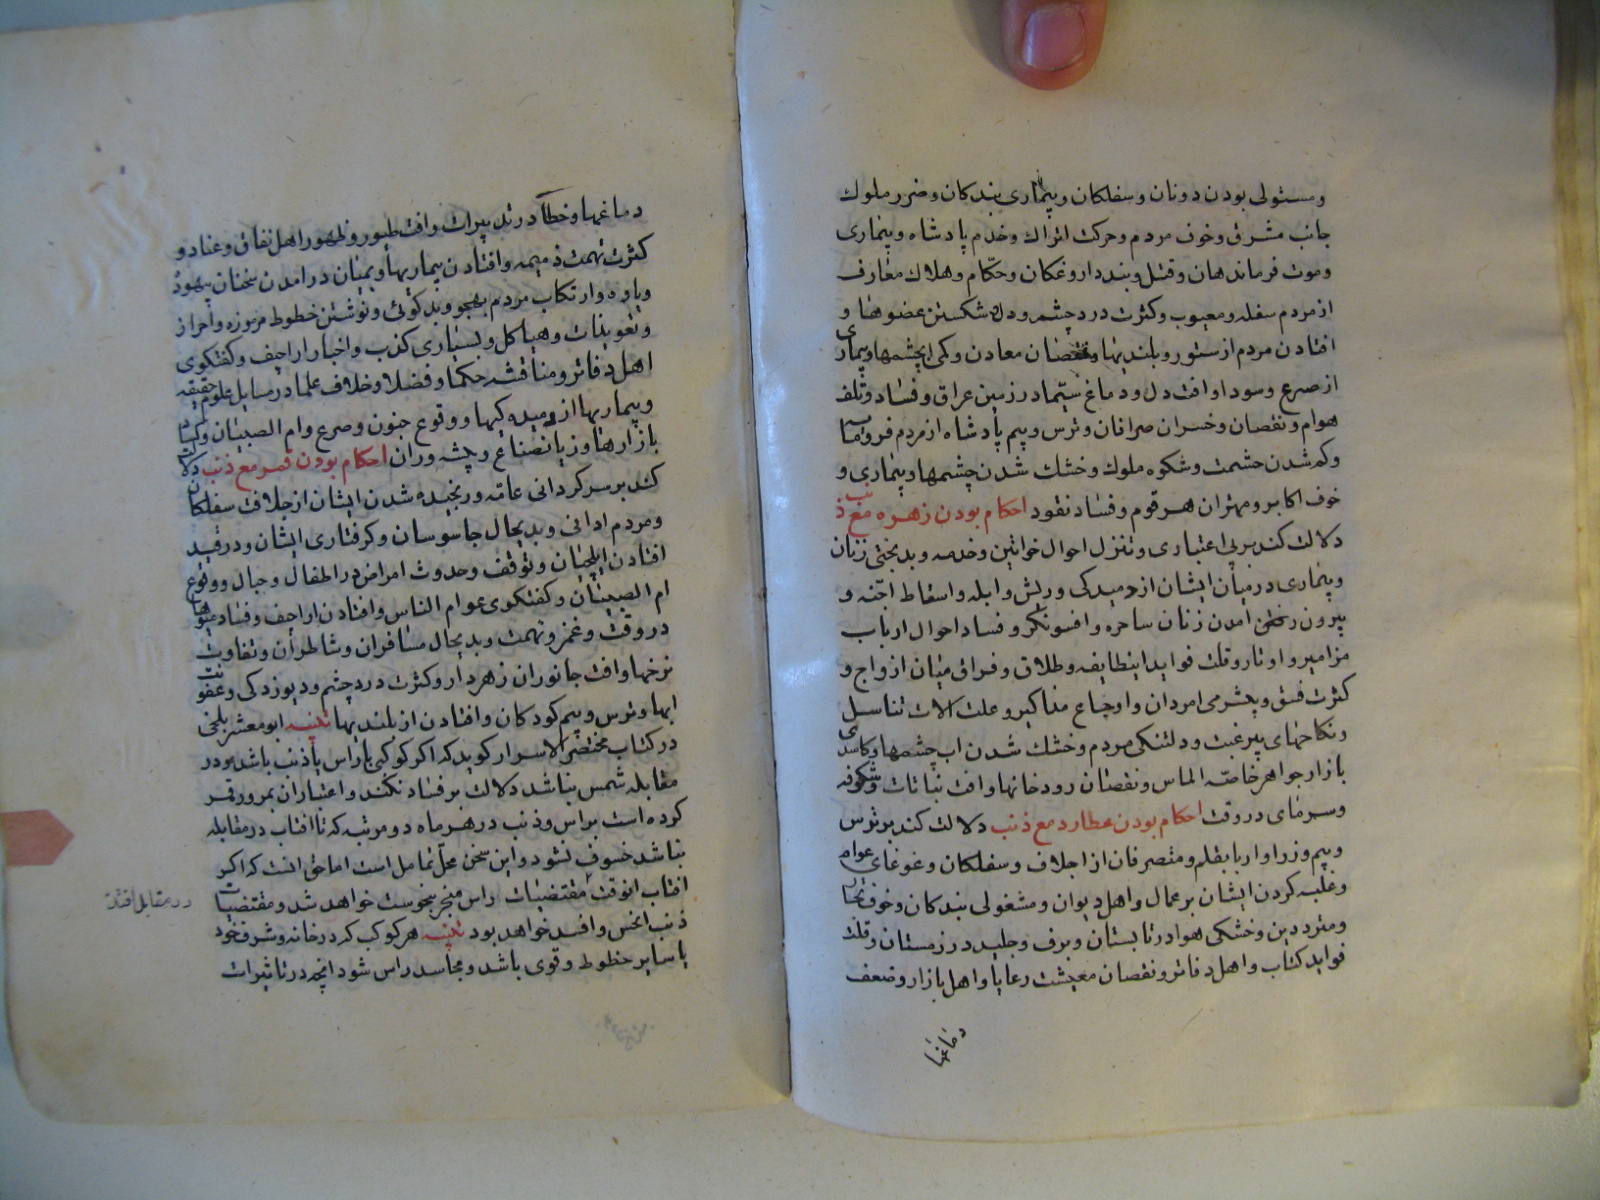 ومستولی بودن دونان وسفلکان وبیماری بندکان وضرر ملوک
جانب مشرق وخوف مردم وحرکت اتراک وخدم پادشاه وبیماری
وموت فرماندهان وقتل وبند داروغکان وحکّام وهلاک معارف
از مردم سفله ومعیوب وکثرت درد چشم ودل وشکستن عضوها و
افتادن مردم از ستور وبلندیها ونقصان معادن وکمی اب چشمها وبیماری
از صرع وسودا وافت دل ودماغ سیّما در زمین عراق وفساد وتلف
هوام ونقصان وخسران صرافان وترس وبیم پادشاه از مردم فرومایه
وکم شدن حشمت وشکوه ملوک وخشک شدن چشمها وبیماری و
خوف اکابر ومهتران هر قوم وفساد نقود احکام بودن زهره مع ذنب
دلالت کند بر بی اعتباری وتنزل احوال خواتین وخدمه وبدبختی زنان
وبیماری در میان ایشان از دمیدکی وریش وابله واسقاط اجنّه و
بیرون امدن زنان ساحره وافسونکر وفساد احوال ارباب
مزامیر واوتار وقلت فواید اینطایفه وطلاق وفراق میان ازواج و
کثرت فسق وبیشرمی امردان واوجاع مذاکیر وعلت الات تناسل
ونکاحهای بیرغبت ودلتنکی مردم وخشک شدن اب چشمها وکاسدی
بازار جواهر خاصّه الماس ونقصان رودخانها وافت نباتات وشکوفه
وسرمای در وقت احکام بودن عطارد مع ذنب دلالت کند بر ترس
وبیم وزرا وارباب قلم ومتصرفان از اجلاف وسفلکان وغوغای عوام
وغلبه کردن ایشان بر عمال واهل دیوان ومشغولی بندکان وخوف تجار
ومترددین وخشکی هوا در تابستان وبرف وجلید در زمستان وقلت
فواید کتاب واهل دفاتر ونقصان معیشت رعایا واهل بازار وضعف
دماغها
دماغها وخطا در تدبیرات وافت طیور وظهور اهل نفاق وعناد و
کثرت تهمت ذمیمه وافتادن بیماریها وبمیان درامدن سخنان بیهوده
وپاره وارتکاب مردم بهجو وبدکوئی ونوشتن خطوط مرموزه واحراز
وتعویذات وهیاکل وبسیاری کذب واخبار اراجیف وکفتکوی
اهل دفاتر ومناقشه حکما وفضلا وخلاف علما در مسایل علوم حقیقه
وبیماریها از دمیدکیها ووقوع جنون وصرع وام الصبیان وکساد
بازارها وزیان صناع وپیشه وران احکام بودن قمر مع ذنب دلالت
کند بر سرکردانی عامّه ورنجیده شدن ایشان از جلافت سفلکان
ومردم ادانی وبدیحال جاسوسان وکرفتاری ایشان ودر قید
افتادن ایلچیان وتوقف وحدوث امراض در اطفال وحبال ووقوع
ام الصبیان وکفتکوی عوام الناس وافتادن اراجیف وفساد میوها
در وقت وغمز وتهمت وبدیحال مسافران وشاطران وتفاوت
نرخها وافت جانوران زهردار وکثرت درد چشم ودیوزدکی وعفونت
ابها وترس وبیم کودکان وافتادن از بلندیها تنبیه ابو معشر بلخی
در کتاب مختصر الاسرار کوید که اکر کوکبی با راس یا ذنب باشد ودر
مقابله شمس نباشد دلالت بر فساد نکند واعتبار ان بمرور قمر
کرده است براس وذنب در هر ماه دو مرتبه که تا افتاب در مقابله
نباشد خسوف نشود واین سخن محلّ تامل است اما حق انست که اکر
افتاب انوقت مقتضیات راس منجر بنحوست خواهد شد ومقتضیات
در مقابل افتد
ذنب انحس وافسد خواهد بود تنبیه هر کوکب که در خانه وشرف خود
یا سایر حظوظ وقوی باشد ومجاسد راس شود انچه در تاثیرات